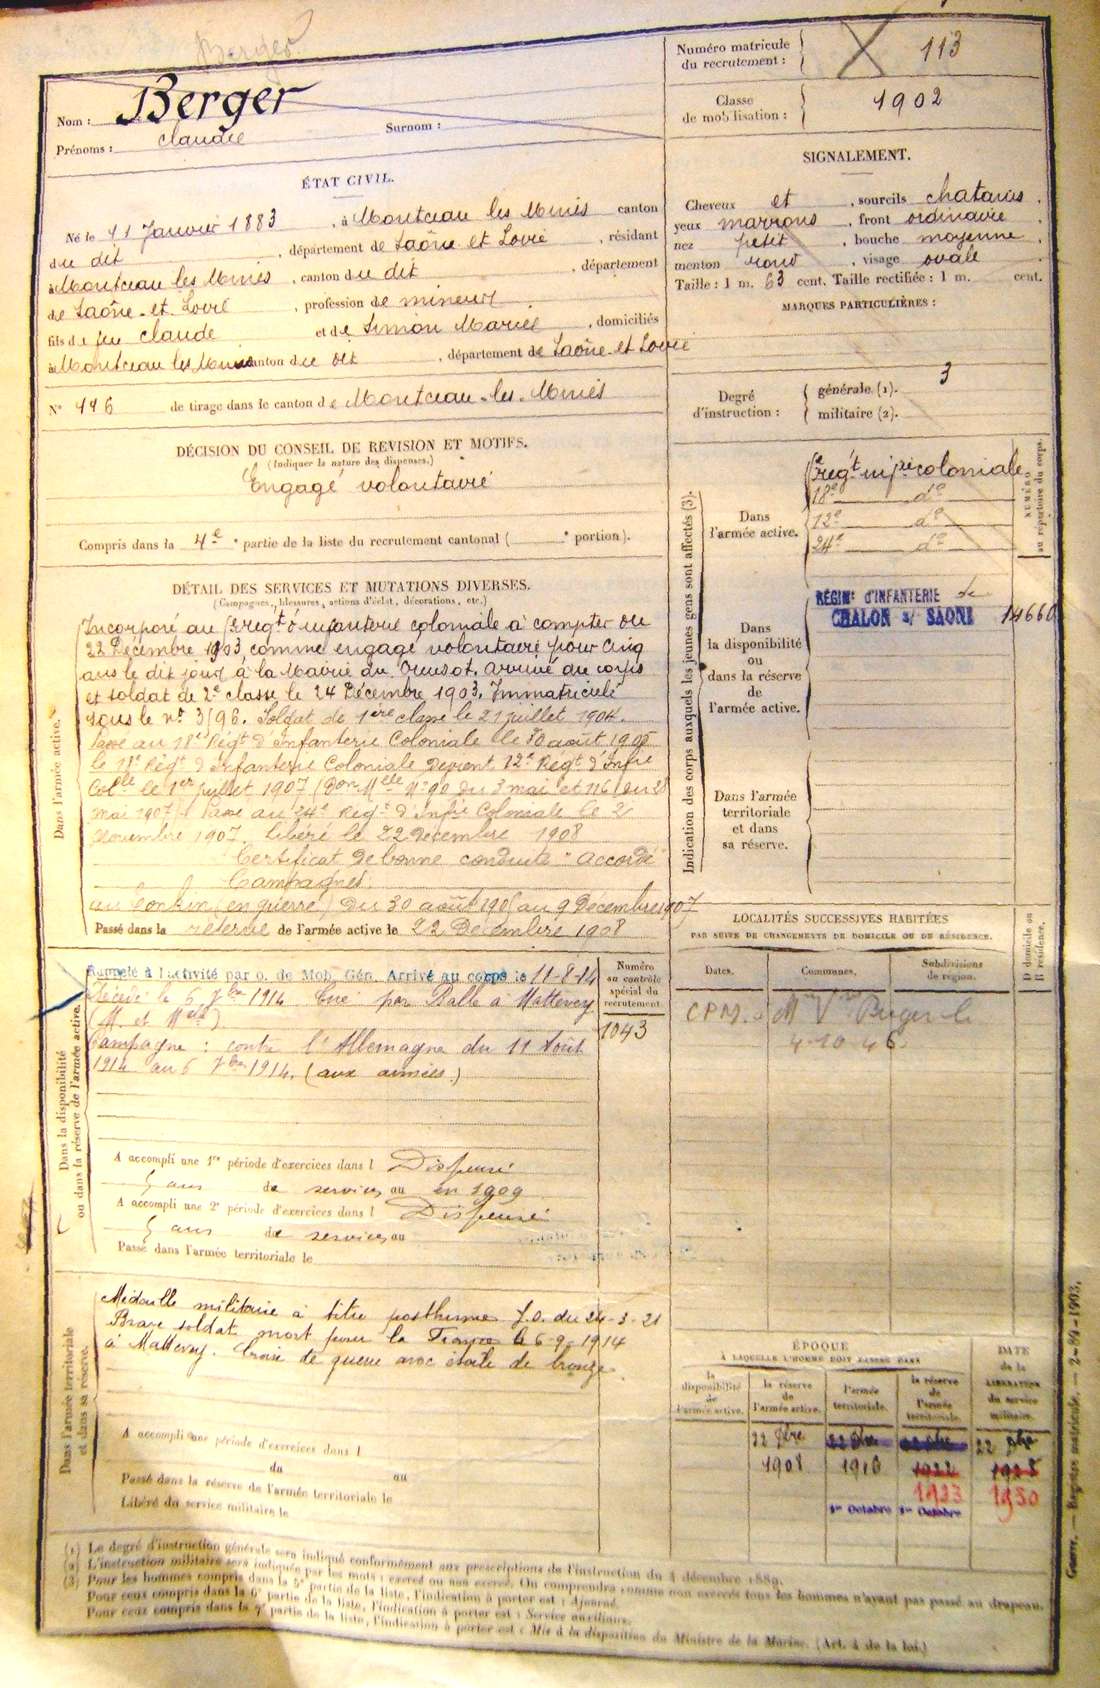 Berger
Numéro matricule
du recrutement :
113
Classe
de mobilisation :
1902
Nom : Berger
Prénoms : Claude
Surnom :
ÉTAT CIVIL.
Né le 11 Janvier 1883, à Montceau les Mines canton
du dit, département de Saône et Loire, résidant
à Montceau les Mines, canton du dit, département
de Saône-et-Loire, profession de mineur
fils de feu Claude et de Simon Marie, domiciliés
à Montceau les Mines canton du dit, département de Saône-et-Loire
N° 116 de tirage dans le canton de Montceau-les-Mines
SIGNALEMENT.
Cheveux et, sourcils chatains,
yeux marrons, front ordinaire
nez petit, bouche moyenne,
menton rond, visage ovale
Taille : 1 m. 63 cent. Taille rectifiée : 1 m. cent.
MARQUES PARTICULIÈRES :
Degré
d'instruction :
générale (1). 3
militaire (2).
DÉCISION DU CONSEIL DE REVISION ET MOTIFS.
(Indiquer la nature des dispenses.)
Engagé volontaire
Compris dans la 4e partie de la liste du recrutement cantonal ( portion).
DÉTAIL DES SERVICES ET MUTATIONS DIVERSES.
(Campagnes, blessures, actions d'éclat, décorations, etc.)
Dans l'armée active.
Incorporé au regt d'infanterie coloniale à compter du
22 Décembre 1903 comme engagé volontaire pour cinq
ans le dit jour à la Mairie du Creusot. Arrivé au corps
et soldat de 2e classe le 24 Décembre 1903. Immatriculé
sous le n° 3196. Soldat de 1ère classe le 21 juillet 1904.
Passé au 18e Régt d'Infanterie Coloniale le 30 août 1905
le Régt d'Infanterie Coloniale devient 12e Régt d'Infie
Colle le 1er juillet 1907 ( Mlle N° 90 du 3 mai et 116 du 28
mai 1907) Passé au 24e Régt d'Infie Coloniale le 2
Novembre 1907. Libéré le 22 Décembre 1908
Certificat de bonne conduite "accordé"
Campagnes.
au Tonkin (en guerre) Du 30 août 1905 au 9 Décembre 1907
Passé dans la réserve de l'armée active le 22 Décembre 1908
Indication des corps auxquels les jeunes gens sont affectés (3).
NUMÉRO
au répertoire du corps.
Dans
l'armée active.
regt infie coloniale
18e do
12e do
24e do
Dans
la disponibilité
ou
dans la réserve
de
l'armée active.
RÉGIMt d'INFANTERIE de
CHALON s/ SAONE 14660
Dans l'armée
territoriale
et dans
sa réserve.
Dans la disponibilité
ou dans la réserve de l'armée active.
Rappelé à l'activité par o. de Mob. Gén. Arrivé au corps le 11-8-14
Décédé le 6 7bre 1914. Tué par Balle à Mattexey
(M. et Melle)
Campagne : contre l'Allemagne du 11 Août
1914 au 6 7bre 1914. (aux armées)
Numéro
au contrôle
spécial du
recrutement
1043
A accompli une 1re période d'exercices dans l Dispensé
5 ans de services au en 1909
A accompli une 2e période d'exercices dans l Dispensé
5 ans de services au
Passé dans l'armée territoriale le
LOCALITÉS SUCCESSIVES HABITÉES
PAR SUITE DE CHANGEMENTS DE DOMICILE OU DE RÉSIDENCE.
Dates.
Communes.
Subdivisions
de région.
D domicile ou
R résidence.
Berger le
4-10-46
Dans l'armée territoriale
et dans sa réserve.
Médaille militaire à titre posthume J.O. du 24-3-21
Brave soldat mort pour la France le 6-9-1914
à Mattexey. Croix de guerre avec étoile de bronze.
A accompli une période d'exercices dans l
du au
Passé dans la réserve de l'armée territoriale le
Libéré du service militaire le
ÉPOQUE
À LAQUELLE L'HOMME DOIT PASSER DANS
la
disponibilité
de
l'armée active.
la réserve
de
l'armée active.
l'armée
territoriale.
la réserve
de
l'armée
territoriale.
DATE
de la
LIBÉRATION
du service
militaire.
22 Xbre
1908
22 Xbre
1916
1er Octobre
22 Xbre
1922
1923
1er Octobre
22 Xbre
1928
1930
(1) Le degré d'instruction générale sera indiqué conformément aux prescriptions de l'instruction du 4 décembre 1889.
(2) L'instruction militaire sera indiquée par les mots : exercé ou non exercé. On comprendra comme non exercés tous les hommes n'ayant pas passé au drapeau.
(3) Pour les hommes compris dans la 5e partie de la liste, l'indication à porter est : Ajourné.
Pour ceux compris dans la 6e partie de la liste, l'indication à porter est : Service auxiliaire.
Pour ceux compris dans la 7e partie de la liste, l'indication à porter est : Mis à la disposition du Ministre de la Marine. (Art. 4 de la loi.)
Guerre. — Registre matricule. — 2-89-1903.